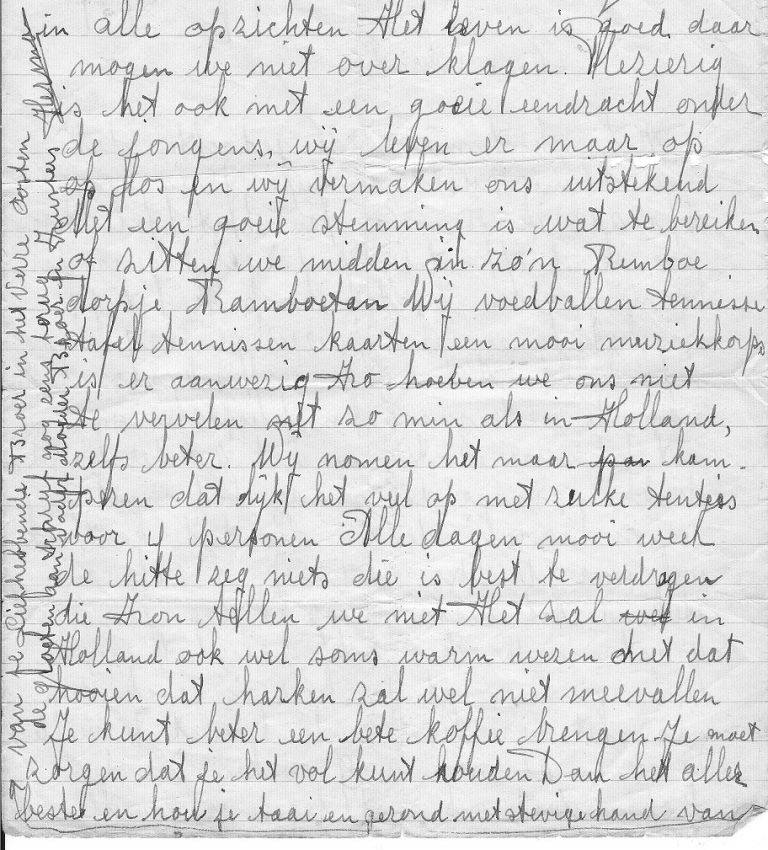 in alle opzichten Het leven is goed daar
mogen we niet over klagen. Plezierig
is het ook met een goeie eendracht onder
de jongens, wij leven er maar op
op los en wij vermaken ons uitstekend
Met een goeie stemming is wat te bereiken
of zitten we midden in zo'n Rimboe
dorpje Ramboetan Wij voedballen tennisse
tafel tennissen kaarten een mooi muziekkorps
is er aanwezig zo hoeben we ons niet
te vervelen net zo min als in Holland,
zelfs beter. Wij nomen het maar kam-
peren dat lijkt het veel op met zulke tentjes
voor 4 personen Alle dagen mooi weer
de hitte zeg niets die is best te verdragen
die tellen we niet Het zal in
Holland ook wel soms warm wezen met dat
hooien dat harken zal wel niet meevallen
Je kunt beter een bete koffie brengen Je moet
zorgen dat je het vol kunt houden Dan het aller
beste en hou je taai en gezond met stevige hand van
van je Liefhebbende Broer in het Verre Oosten
de groeten aan schrijf nog eens terug
Dacht allander Broer en Zusters Herman